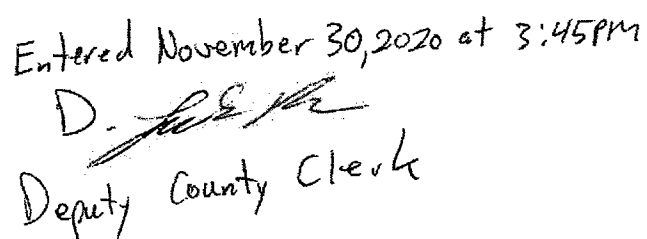 Entered November 30, 2020 at 3:45PM
D.
Deputy County Clerk